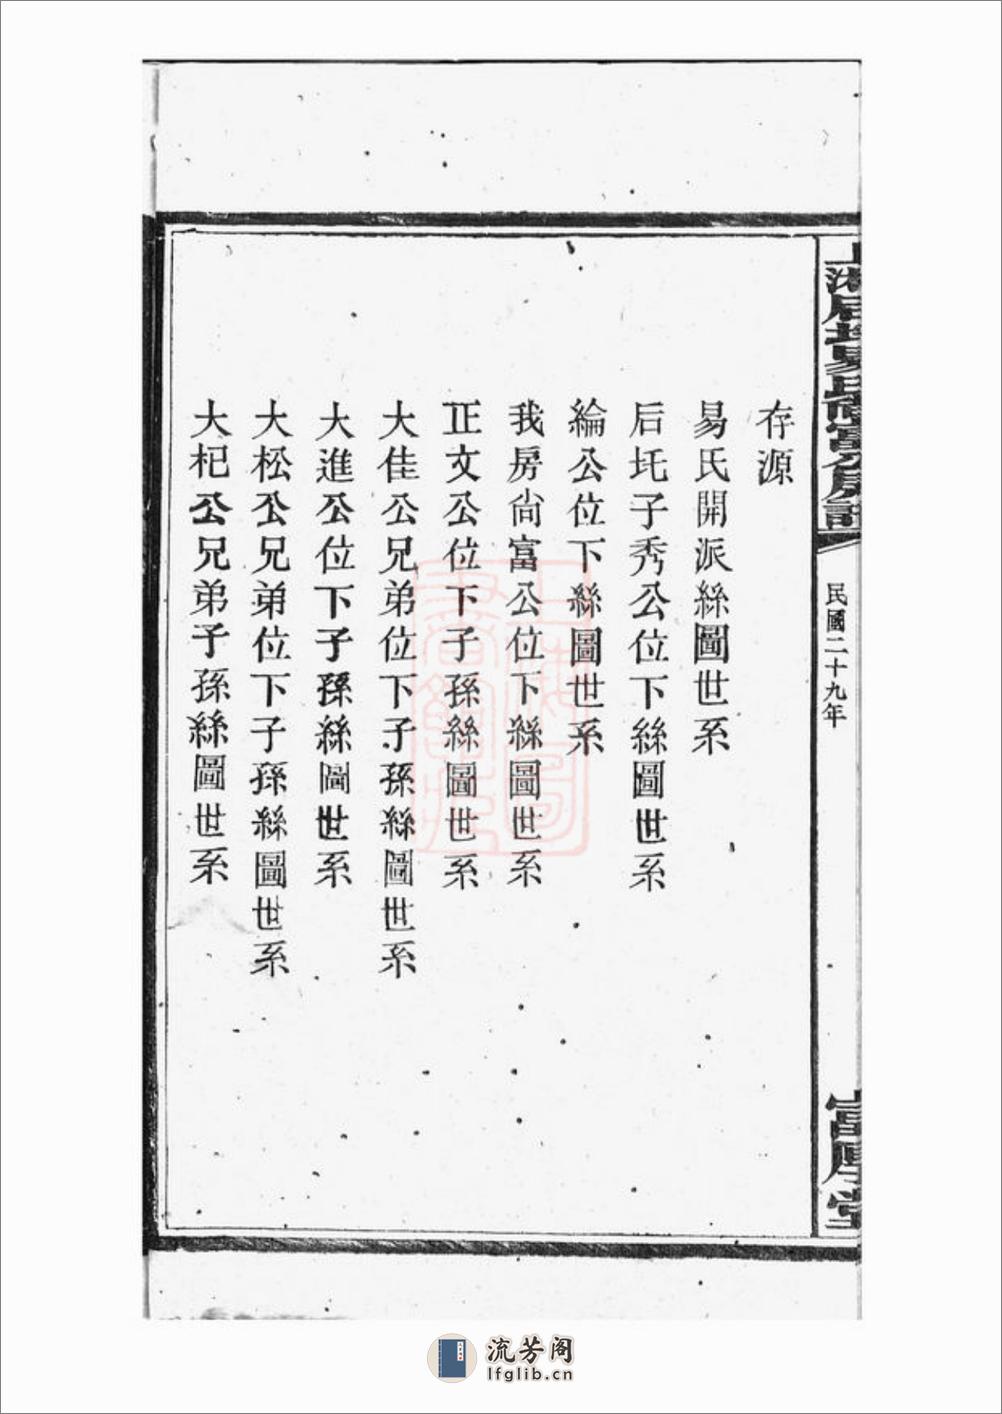 存源
易氏開派絲圖世系
后圫子秀公位下絲圖世系
綸公位下絲圖世系
我房尙富公位下絲圖世系
正文公位下子孫絲圖世系
大佳公兄弟位下子孫絲圖世系
大進公位下子孫絲圖世系
大松公兄弟位下子孫絲圖世系
大杞公兄弟子孫絲圖世系
民國二十九年
富厚堂
流芳阁
lfglib.cn